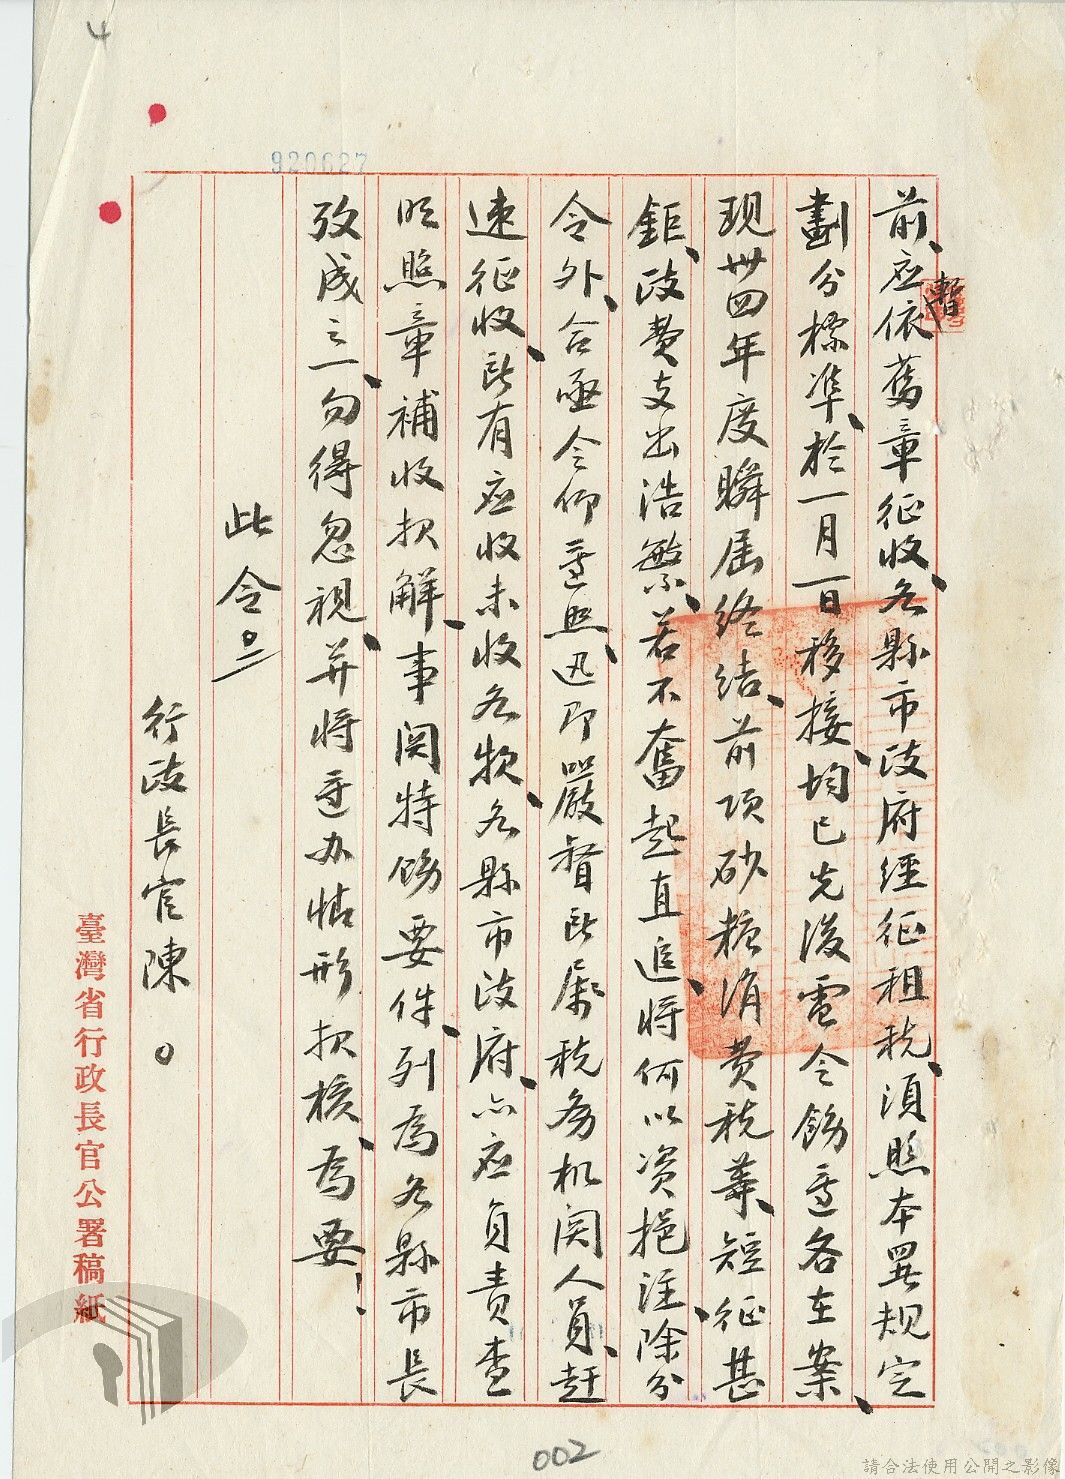 4
920627
前、应暫依舊章征收、各縣市政府經征租税、須照本署规定
劃分標準、於一月一日移接、均已先後電令飭遵各在案、
现卅四年度瞬届终结、前项砂糖消费税業、短征甚
鉅、政费支出浩繁、若不奮起直追、将何以资挹注、除分
令外、合亟令仰遵照、迅即嚴督所属税务机関人員、赶
速征收、所有应收未收各款、各縣市政府、亦应負責查
明照章補收报解、事関特飭要件、列為各縣市長
攷成之一、勿得忽視、并将遵办情形报核、為要！
此令。
行政長官陳。
臺灣省行政長官公署稿紙
002
請合法使用公開之影像